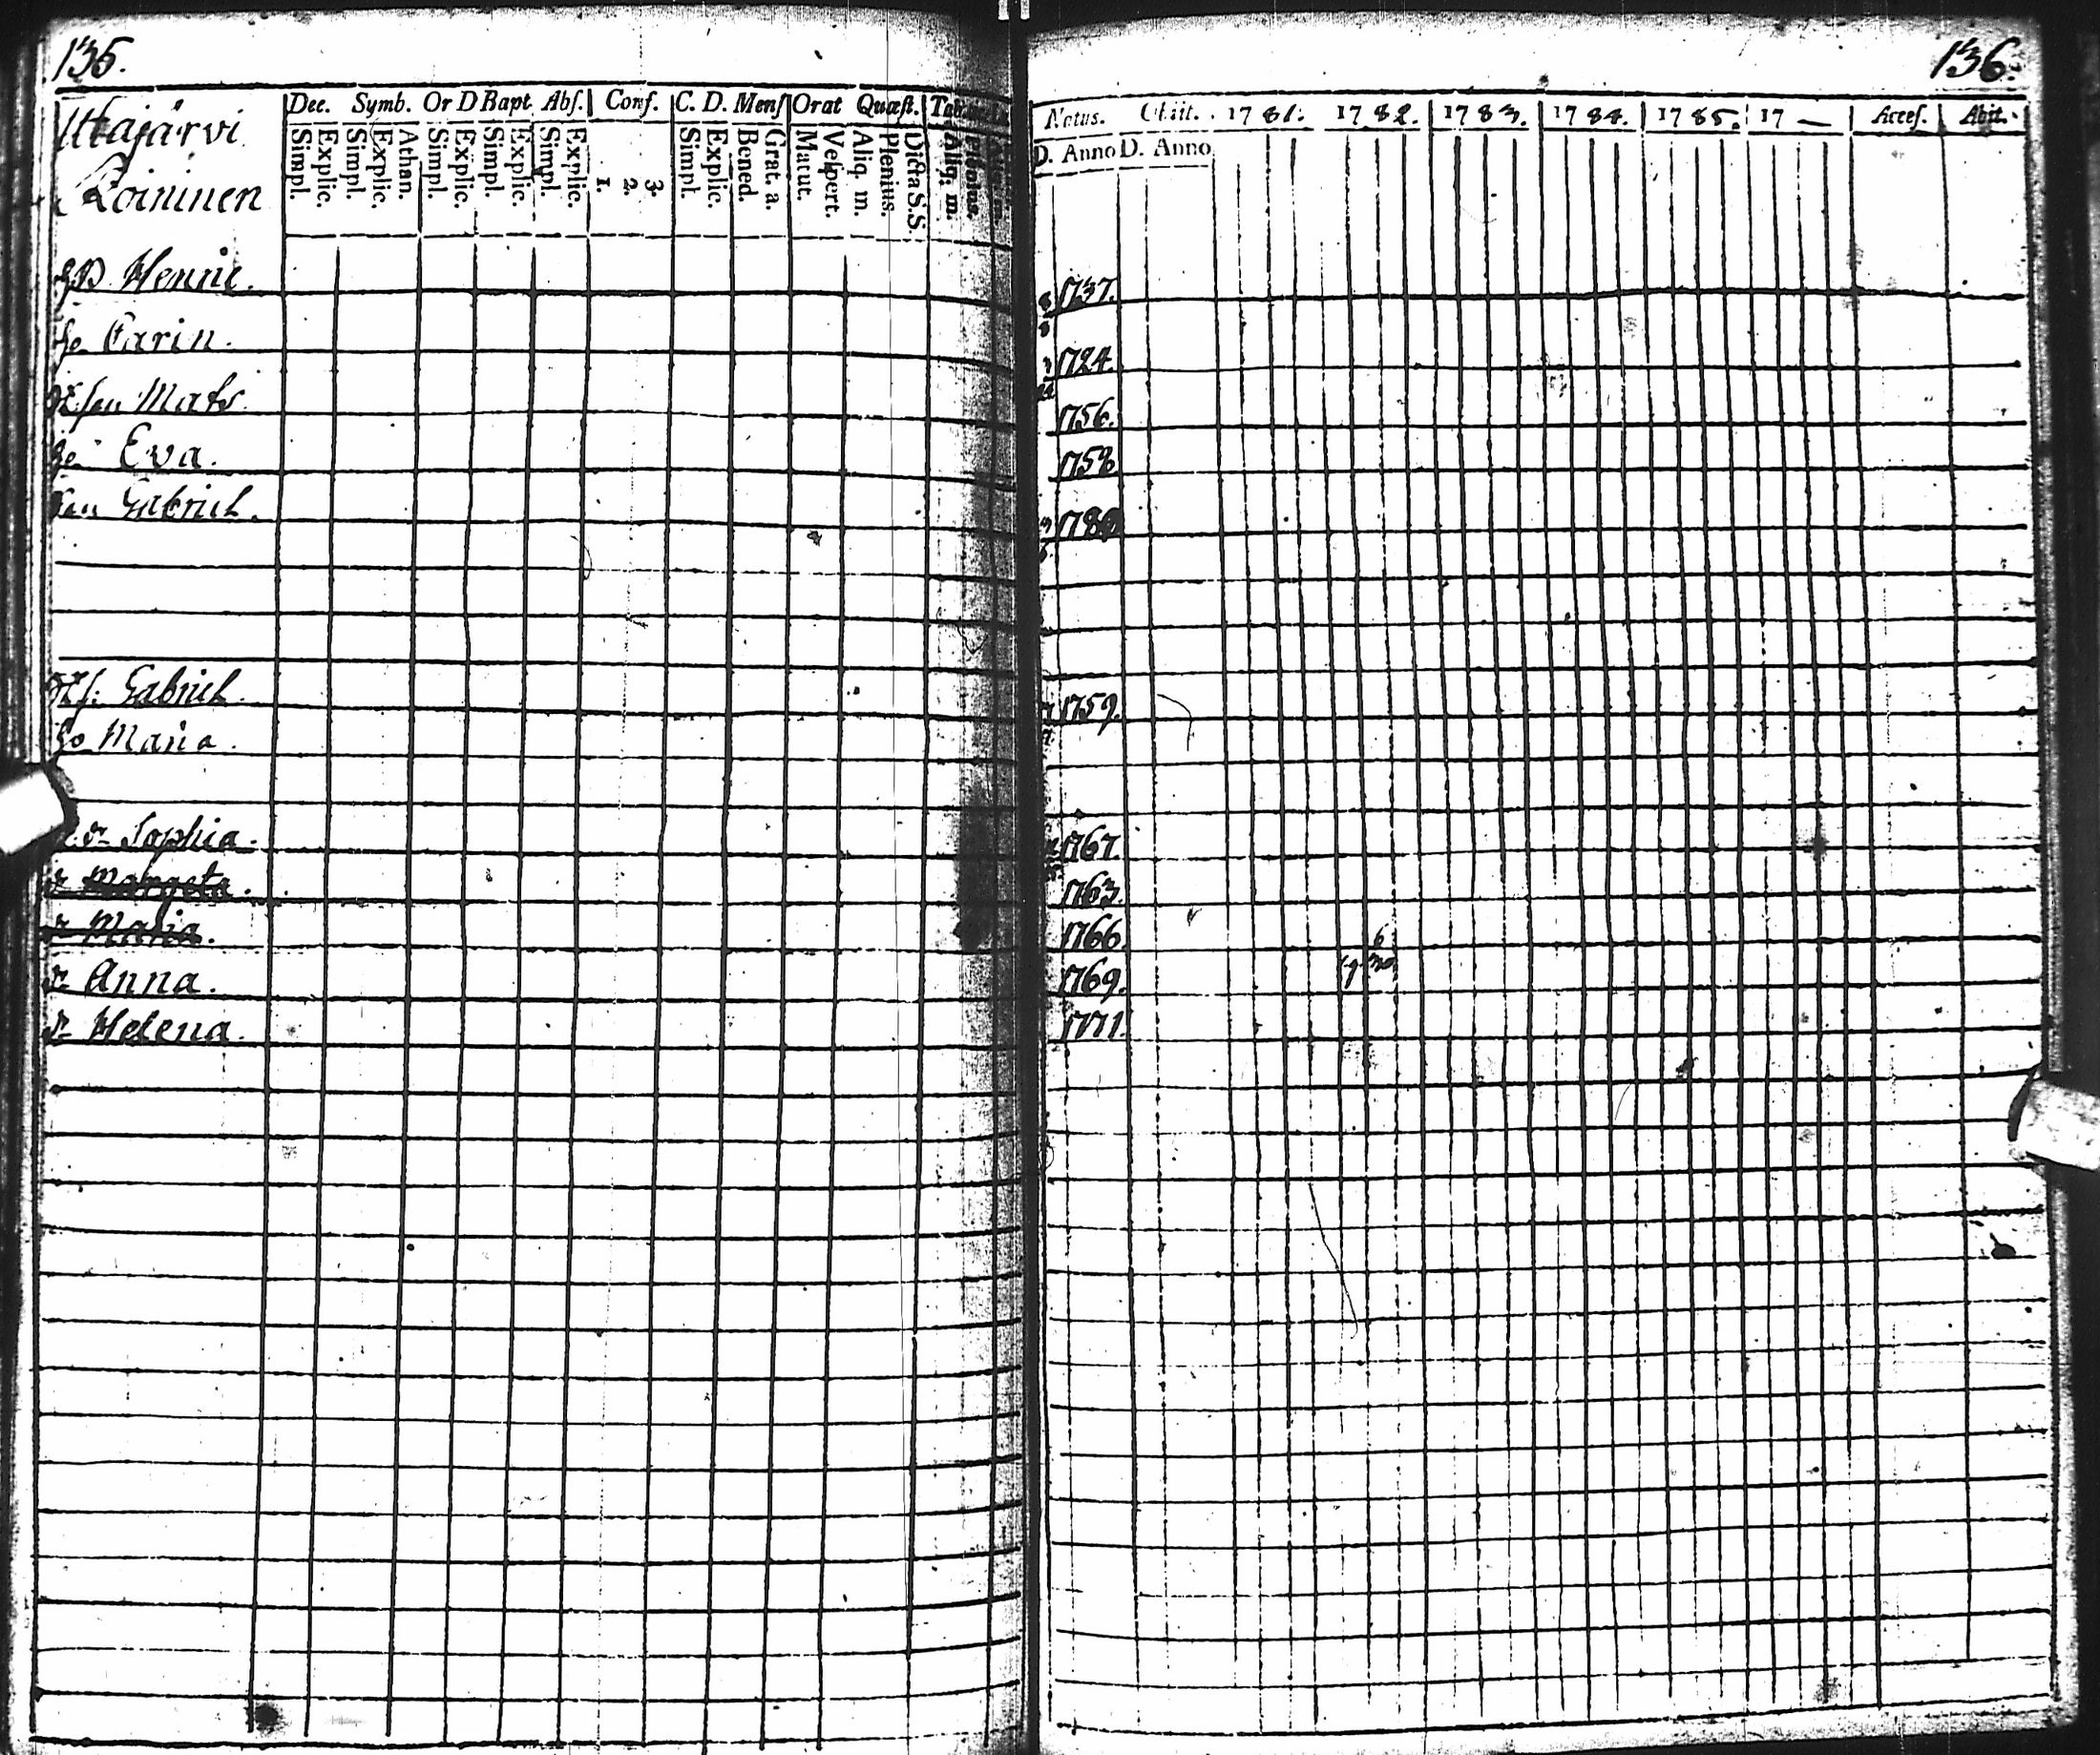 135.
Uttajärvi
Loininen
Dec. Symb. Or D Bapt. Abs. Conf. C. D. Mens Orat Quæst.
Simpl. Explic. Simpl. Explic. Athan. Simpl. Explic. Simpl. Explic. Simpl. Explic. 1. 2. 3. Simpl. Explic. Bened. Grat. a. Matut. Vespert. Aliq. m. Plenius. Dicta S.S. Aliq. m. Plenius.
Henric.
Carin.
Mats
Eva.
Gabriel.
Gabriel
Maria.
Sophia.
Margeta.
Maria.
Anna.
Helena.
136.
Natus. Obiit. 1781. 1782. 1783. 1784. 1785. 17— Acces. Abit.
D. Anno D. Anno
1737.
1724.
1756.
1758
1780
1759.
1767.
1763.
1766.
1769.
1771.